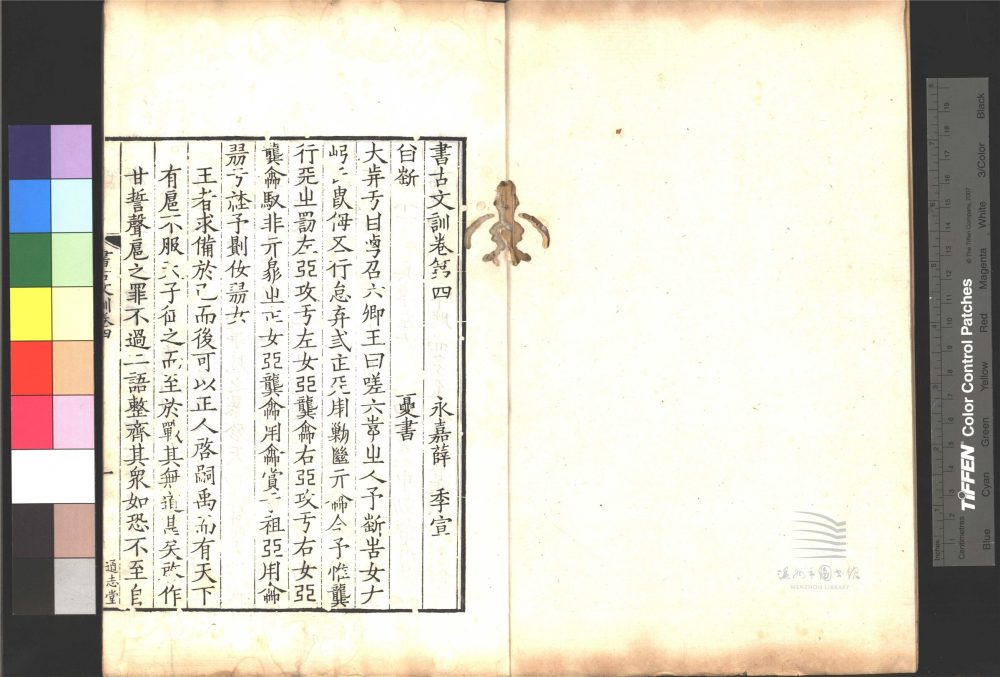 書古文訓卷第四 永嘉薛 季宣
甘斷 夓書
大弁亐甘卤召六卿王曰嗟六㞢人予斷告女ナ
㞢侮𠄡行怠弃弎正兂用勦㡭亓命今予惟龔
行兂㞢罰左亞攻亐左女亞龔命右亞攻亐右女亞
龔命馭非亓㞢正女亞龔命用命賞亐祖亞用命
亐社予劓女
王者求備於己而後可以正人啓嗣禹而有天下
有扈不服天子征之而至於戰其無道甚矣故作
甘誓聲扈之罪不過二語整齊其衆如恐不至自
書古文訓卷四
一
通志堂
溫州市圖書館
WENZHOU LIBRARY
TIFFEN Color Control Patches
© The Tiffen Company, 2007
Inches
Centimetres
Blue Cyan Green Yellow Red Magenta White 3/Color Black